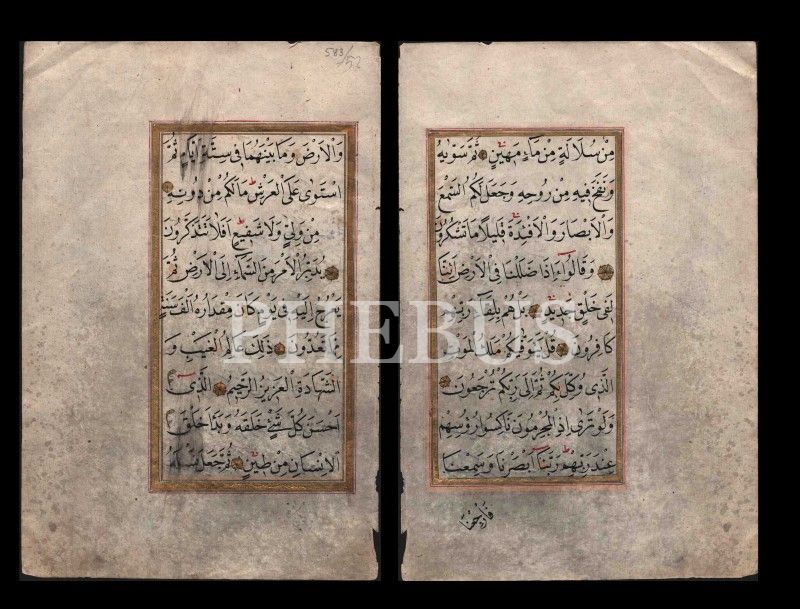 583/52
وَالْاَرْضَ وَمَا بَيْنَهُمَا فِى سِتَّةِ اَيَّامٍ ثُمَّ
اسْتَوٰى عَلَى الْعَرْشِ مَالَكُمْ مِنْ دُونِهِ
مِنْ وَلِيٍّ وَلَا شَفِيعٍ اَفَلَا تَتَذَكَّرُونَ
يُدَبِّرُ الْاَمْرَ مِنَ السَّمَاءِ اِلَى الْاَرْضِ ثُمَّ
يَعْرُجُ اِلَيْهِ فِى يَوْمٍ كَانَ مِقْدَارُهُ اَلْفَ سَنَةٍ
مِمَّا تَعُدُّونَ ذٰلِكَ عَالِمُ الْغَيْبِ وَ
الشَّهَادَةِ الْعَزِيزُ الرَّحِيمُ الَّذِى
اَحْسَنَ كُلَّ شَىْءٍ خَلَقَهُ وَبَدَاَ خَلْقَ
الْاِنْسَانِ مِنْ طِينٍ ثُمَّ جَعَلَ نَسْلَهُ
مِنْ سُلَالَةٍ مِنْ مَاءٍ مَهِينٍ ثُمَّ سَوّٰيهُ
وَنَفَخَ فِيهِ مِنْ رُوحِهِ وَجَعَلَ لَكُمُ السَّمْعَ
وَالْاَبْصَارَ وَالْاَفْئِدَةَ قَلِيلًا مَا تَشْكُرُونَ
وَقَالُوا ءَاِذَا ضَلَلْنَا فِى الْاَرْضِ ءَاِنَّا
لَفِى خَلْقٍ جَدِيدٍ بَلْ هُمْ بِلِقَاءِ رَبِّهِمْ
كَافِرُونَ قُلْ يَتَوَفّٰيكُمْ مَلَكُ الْمَوْتِ
الَّذِى وُكِّلَ بِكُمْ ثُمَّ اِلٰى رَبِّكُمْ تُرْجَعُونَ
وَلَوْ تَرٰى اِذِ الْمُجْرِمُونَ نَاكِسُوا رُؤُسِهِمْ
عِنْدَ رَبِّهِمْ رَبَّنَا اَبْصَرْنَا وَسَمِعْنَا
فَارْجِعْنَا
PHEBUS